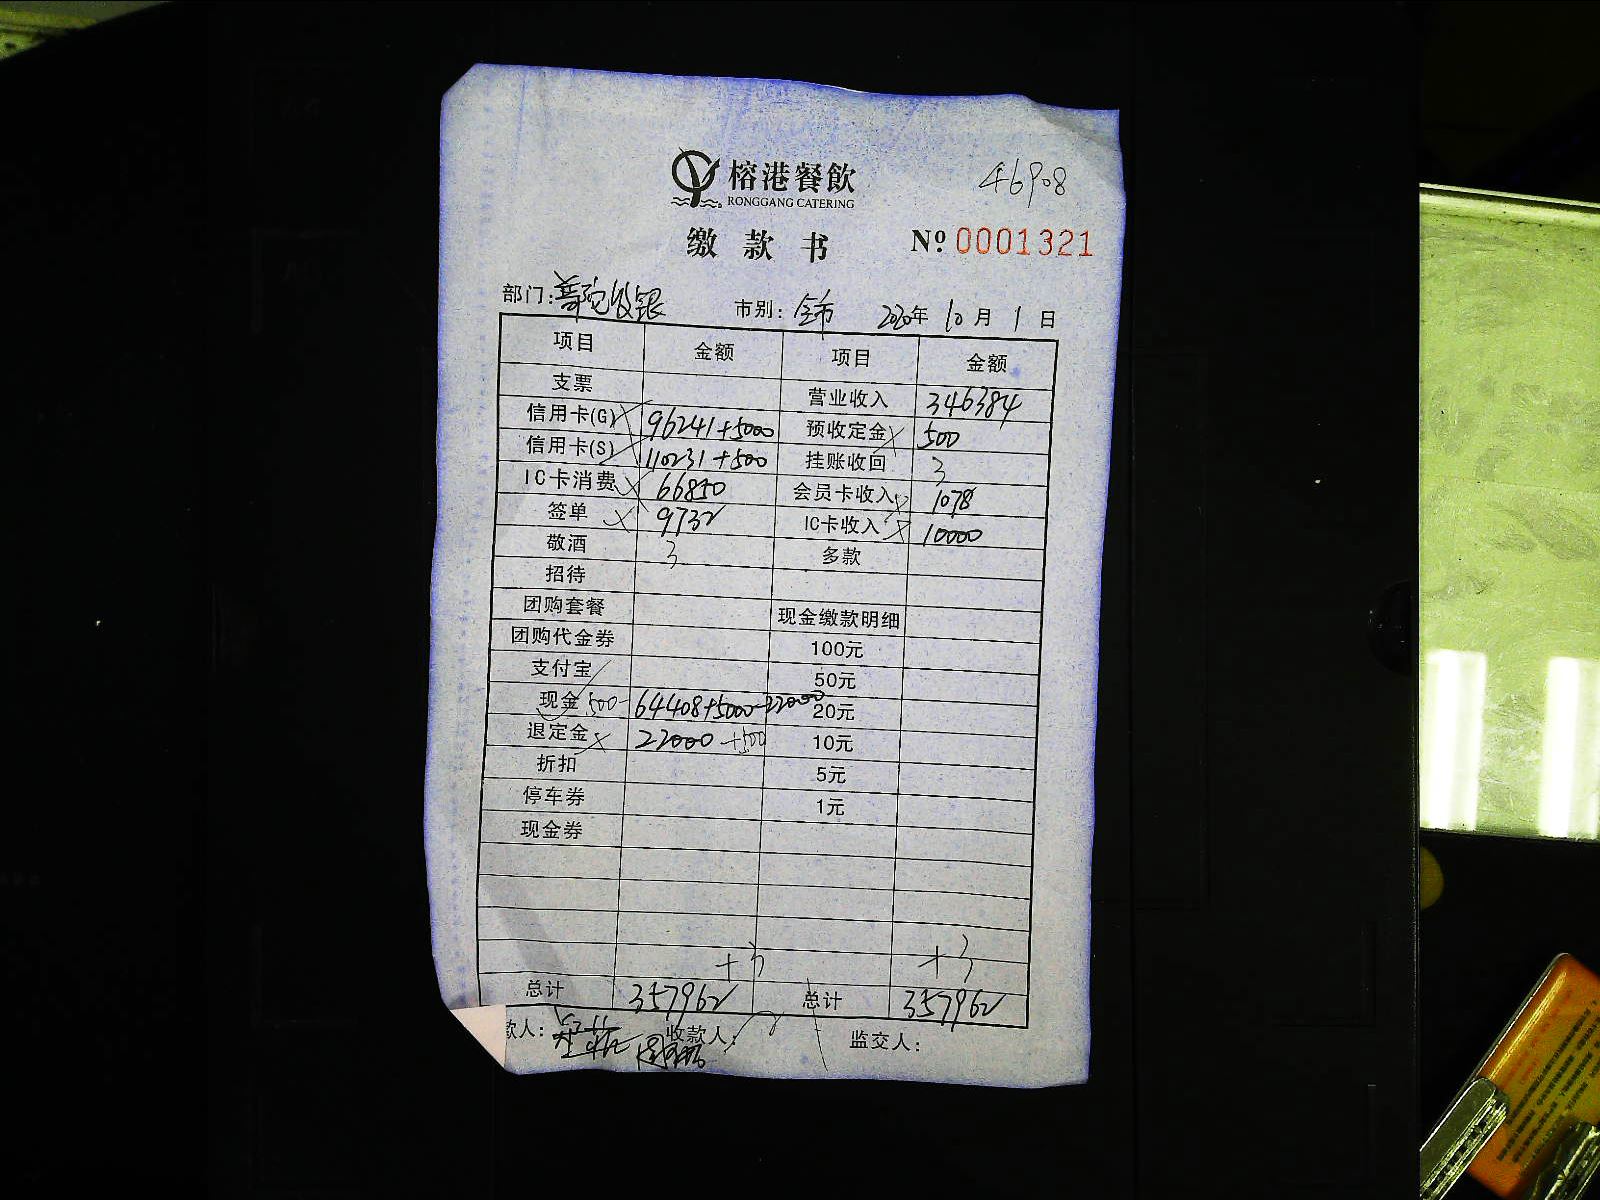 榕港餐飲
RONGGANG CATERING
46908
缴款书
№ 0001321
部门: 普陀收银 市别: 全市 2020年 10月 1日
项目 金额 项目 金额
支票 营业收入 346384
信用卡(G) 96241+5000 预收定金 500
信用卡(S) 110231+500 挂账收回 3
IC卡消费 66850 会员卡收入 1078
签单 9732 IC卡收入 10000
敬酒 3 多款
招待
团购套餐 现金缴款明细
团购代金券 100元
支付宝 50元
现金 500- 64408+5000-22000 20元
退定金 22000 +500 10元
折扣 5元
停车券 1元
现金券
+3 +3
总计 357962 总计 357962
款人: 收款人: 监交人: